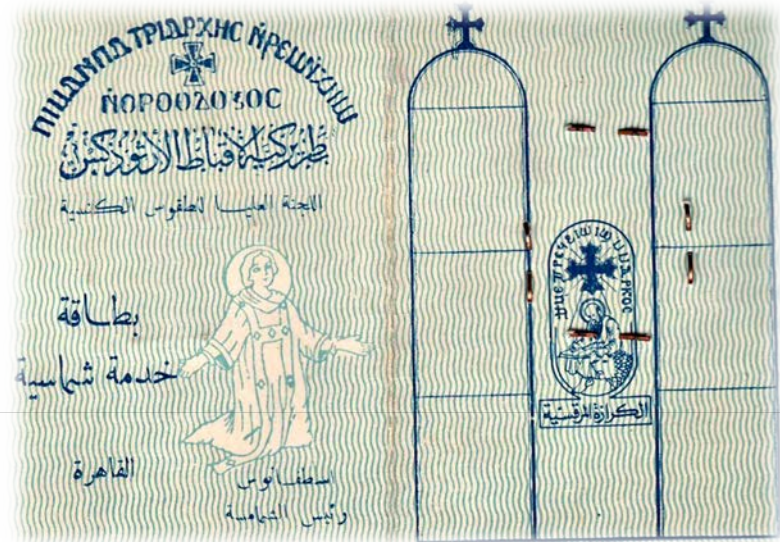 ⲠⲒⲘⲀⲚⲠⲀⲦⲢⲒⲀⲢⲬⲎⲤ ⲚⲢⲈⲘⲚⲬⲎⲘⲒ
ⲚⲞⲢⲐⲞⲆⲞⲜⲞⲤ
بطريركية الأقباط الأرثوذكس
اللجنة العليا للطقوس الكنسية
بطاقة
خدمة شماسية
القاهرة
اسطفانوس
رئيس الشمامسة
الكرازة المرقسية